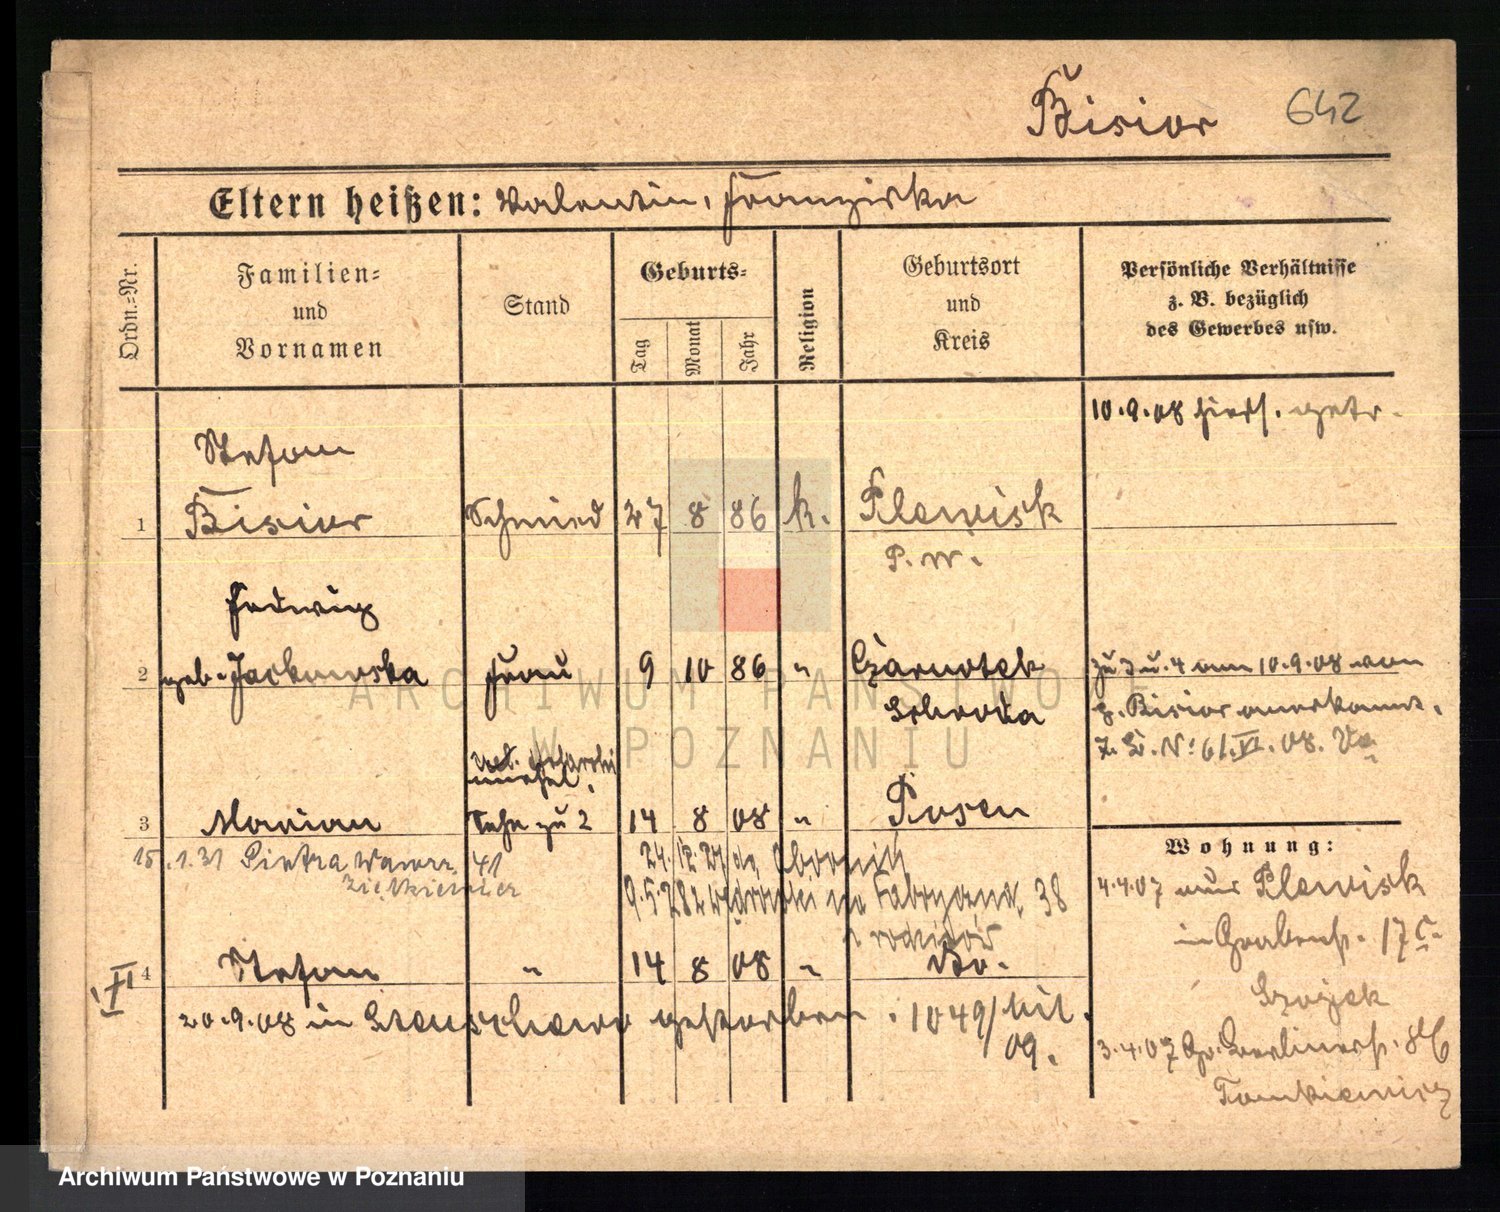 Bisior 642
Eltern heißen: Valentin, Franziska
Ordn.-Nr.
Familien-
und
Vornamen
Stand
Geburts-
Tag
Monat
Jahr
Religion
Geburtsort
und
Kreis
Persönliche Verhältnisse
z. B. bezüglich
des Gewerbes usw.
10.9.08 hiers. getr.
Stefan
1 Bisior Schmied 27 8 86 k. Plewisk
P. W.
Hedwig
2 geb. Jackowska Frau 9 10 86 " Czarnotek
Schroda
zu 3 u. 4 am 10.9.08 von
Bisior anerkannt.
3 Marian Sohn zu 2 14 8 08 " Posen
15.1.31 Piotra Wawrz. 41
24.12.
9.5.28 Fabryczna 38
4 Stefan " 14 8 08 " Do.
20.9.08 in gestorben. 1049/
09.
Wohnung:
4.4.07 aus Plewisk
in Grabenstr. 17
3.4.07 Gr. Berlinerstr. 86
Tomkiewicz
ARCHIWUM PAŃSTWOWE
W POZNANIU
Archiwum Państwowe w Poznaniu